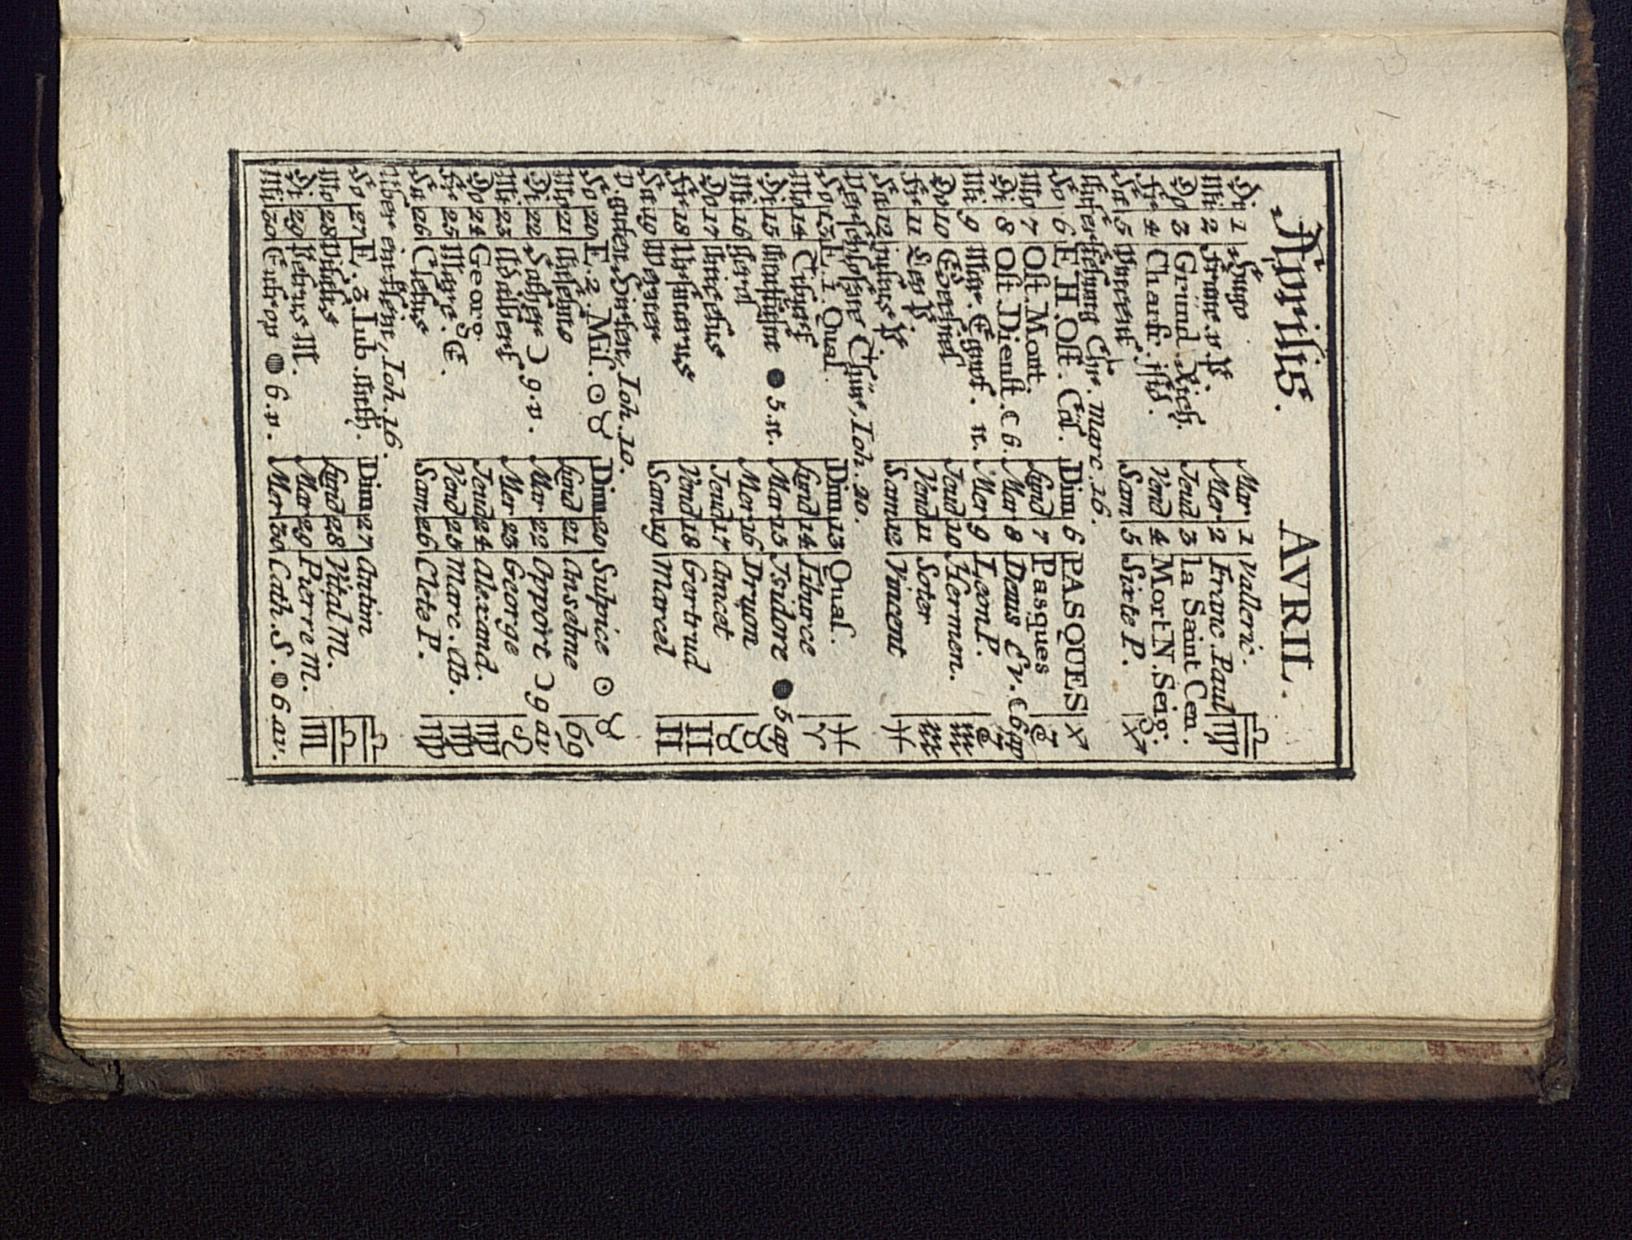 Aprilis. AVRIL.
Di 1 Hugo Mar 1 Valleric.
Mi 2 Franc. v. P. Mer 2 Franc. Paul ♍
Do 3 Gründ. Rich. Jeud 3 la Saint Cen.
Fr 4 Charfr. Isid. Vend 4 Mort N. Seig.
Sa 5 Vincent Sam 5 Sixte P. ♐
Aufersehung Chr. Marc. 16.
So 6 E H. Ost. Cöl. Dim 6 PASQUES ♐
Mo 7 Ost. Mont. Lund 7 Pasques
Di 8 Ost. Dienst. ☾ 6. Mar 8 Denis Ev. ☾ 6 ap
Mi 9 Mar. Egypt. n. Mer 9 Leon P.
Do 10 Ezechiel Jeud 10 Hermen. ♒
Fr 11 Leo P. Vend 11 Soter ♒
Sa 12 Julius P. Sam 12 Vincent ♓
Verschlossne Thür, Ioh. 20.
So 13 E. 1. Quas. Dim 13 Quas. ♓
Mo 14 Tiburt Lund 14 Tiburce ♈
Di 15 ● 5. n. Mar 15 Isidore ● 5 ap
Mi 16 Mer 16 Druon ♉
Do 17 Anicetus Jeud 17 Ancet ♉
Fr 18 Ursmarus Vend 18 Gertrud ♊
Sa 19 Werner Sam 19 Marcel ♊
V. guten Hirten, Ioh. 10.
So 20 E. 2. Mis. ☉ ♉ Dim 20 Sulpice ☉ ♉
Mo 21 Anselmo Lund 21 Anselme ♋
Di 22 Sother ☽ 9. v. Mar 22 Opport ☽ 9 av
Mi 23 Adalbert Mer 23 George ♌
Do 24 Georg. Jeud 24 Alexand. ♍
Fr 25 Marc. E. Vend 25 Marc. Ab. ♍
Sa 26 Cletus Sam 26 Clete P. ♍
Uber ein klein, Ioh. 16.
So 27 E. 3. Jub. Anth. Dim 27 Antim ♎
Mo 28 Vitalis Lund 28 Vital M. ♎
Di 29 Petrus M. Mar 29 Pierre M. ♏
Mi 30 Eutrop ● 6. v. Mer 30 Cath. S. ● 6 av.